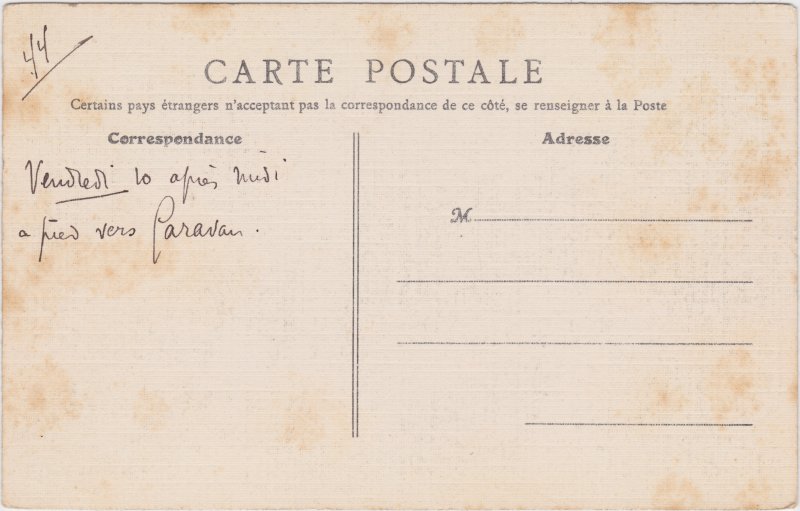 44
CARTE POSTALE
Certains pays étrangers n'acceptent pas la correspondance de ce côté, se renseigner à la Poste
Correspondance
Vendredi 10 après midi
a pied vers Garavan.
Adresse
M